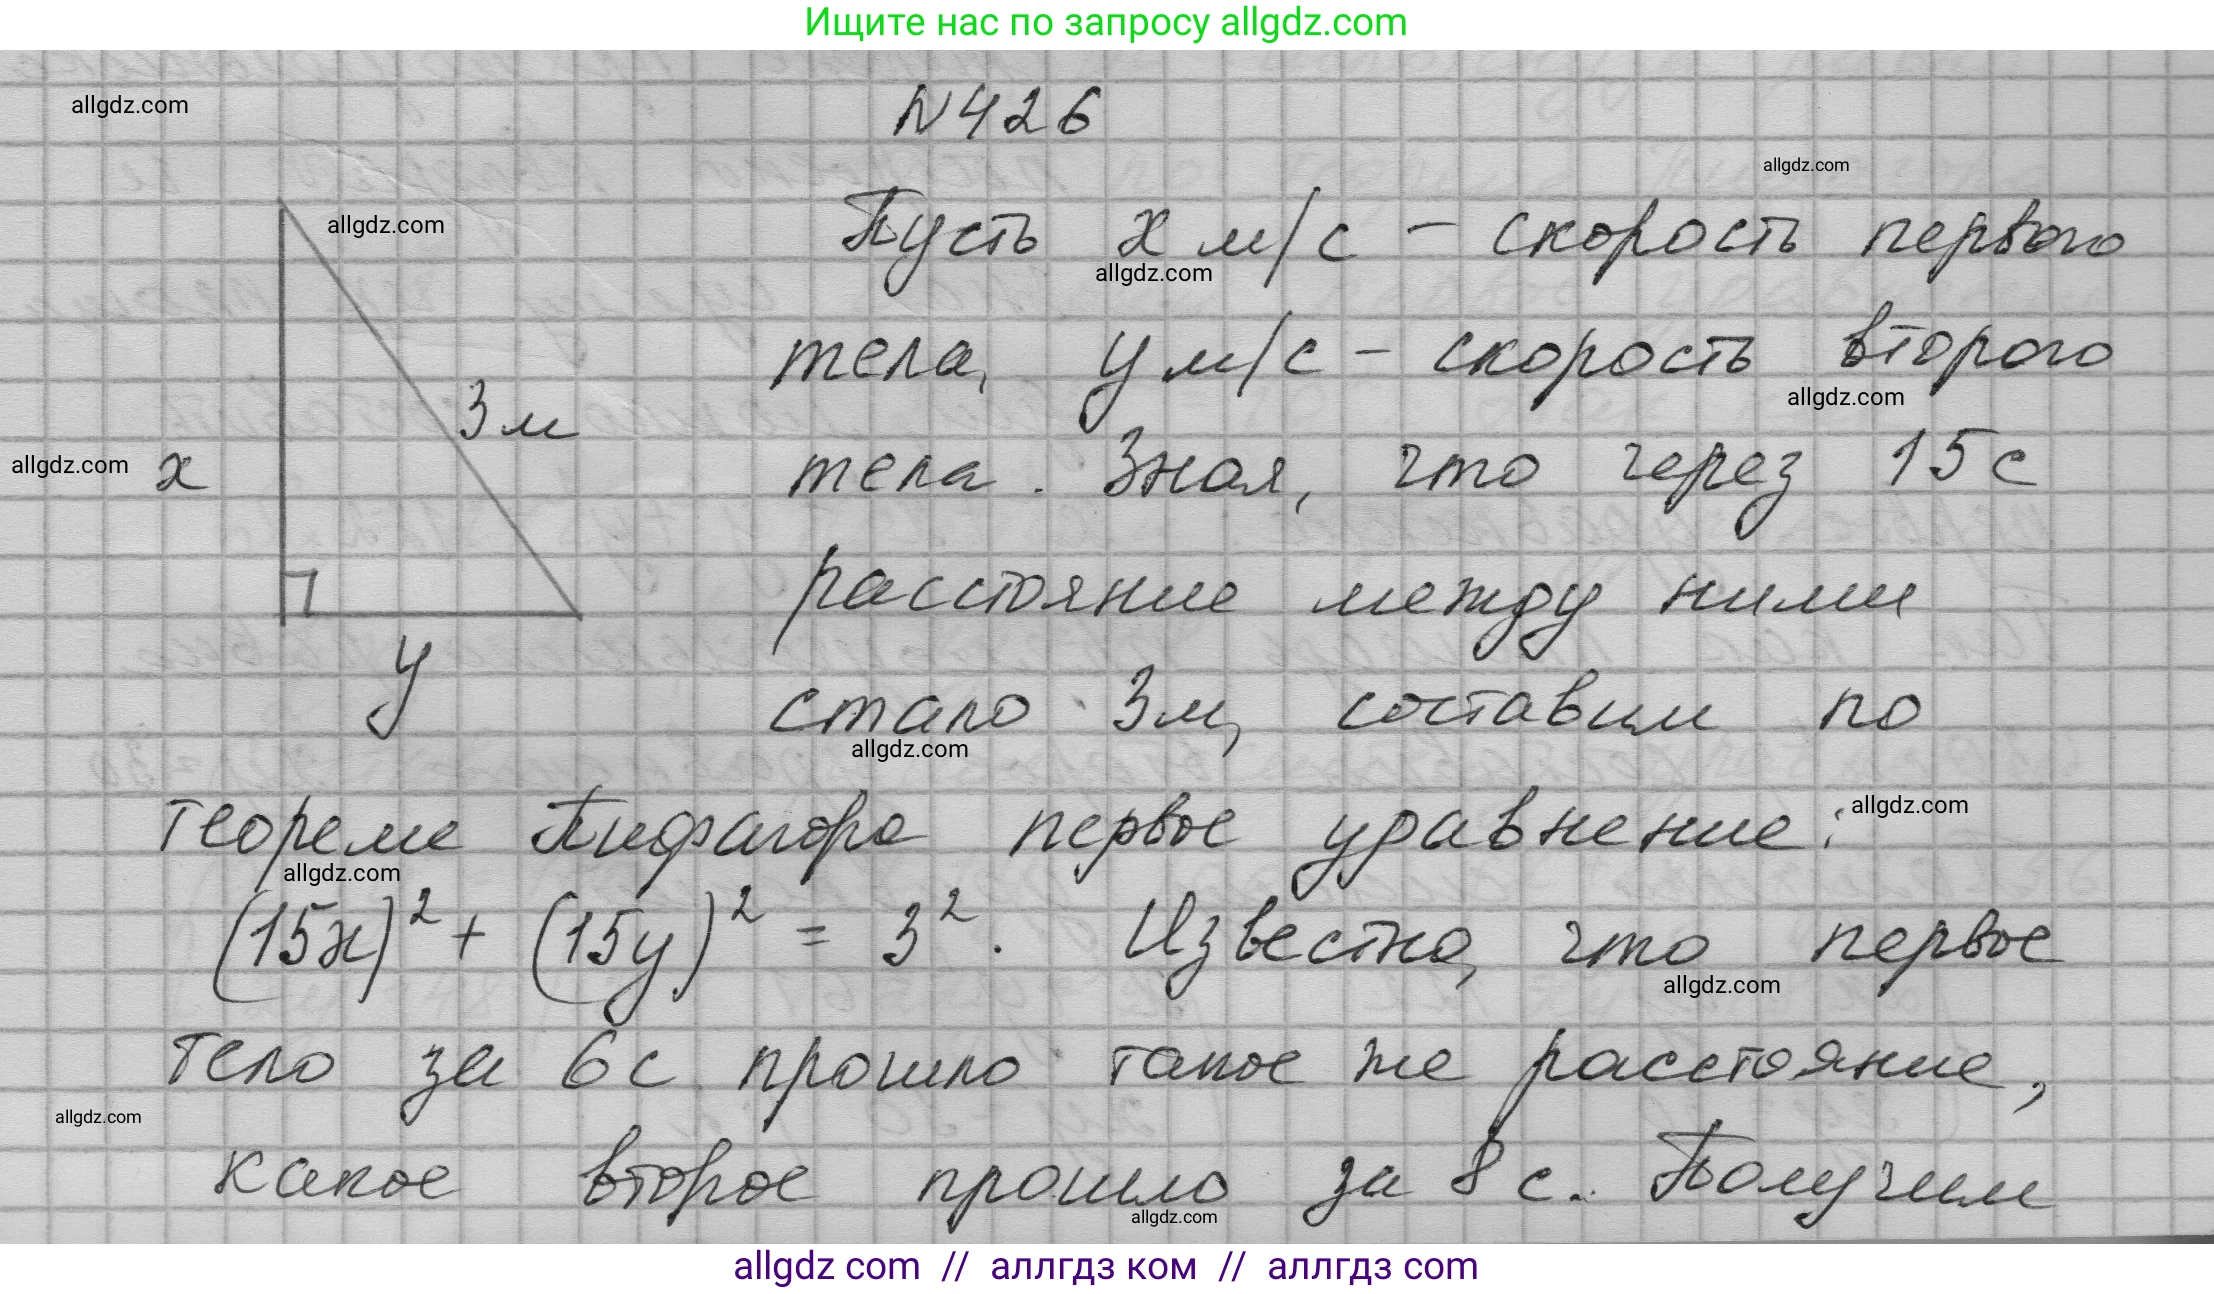 Ищите нас по запросу allgdz.com
allgdz.com
N426
allgdz.com
allgdz.com
Пусть x м/с - скорость первого
allgdz.com
тела, y м/с - скорость второго
allgdz.com
3м
allgdz.com
x
тела. Зная, что через 15с
расстояние между ними
y
стало 3м, составим по
allgdz.com
теореме Пифагора первое уравнение:
allgdz.com
allgdz.com
(15x)² + (15y)² = 3². Известно, что первое
allgdz.com
тело за 6с прошло такое же расстояние,
allgdz.com
какое второе прошло за 8с. Получим
allgdz.com
allgdz com // аллгдз ком // аллгдз com